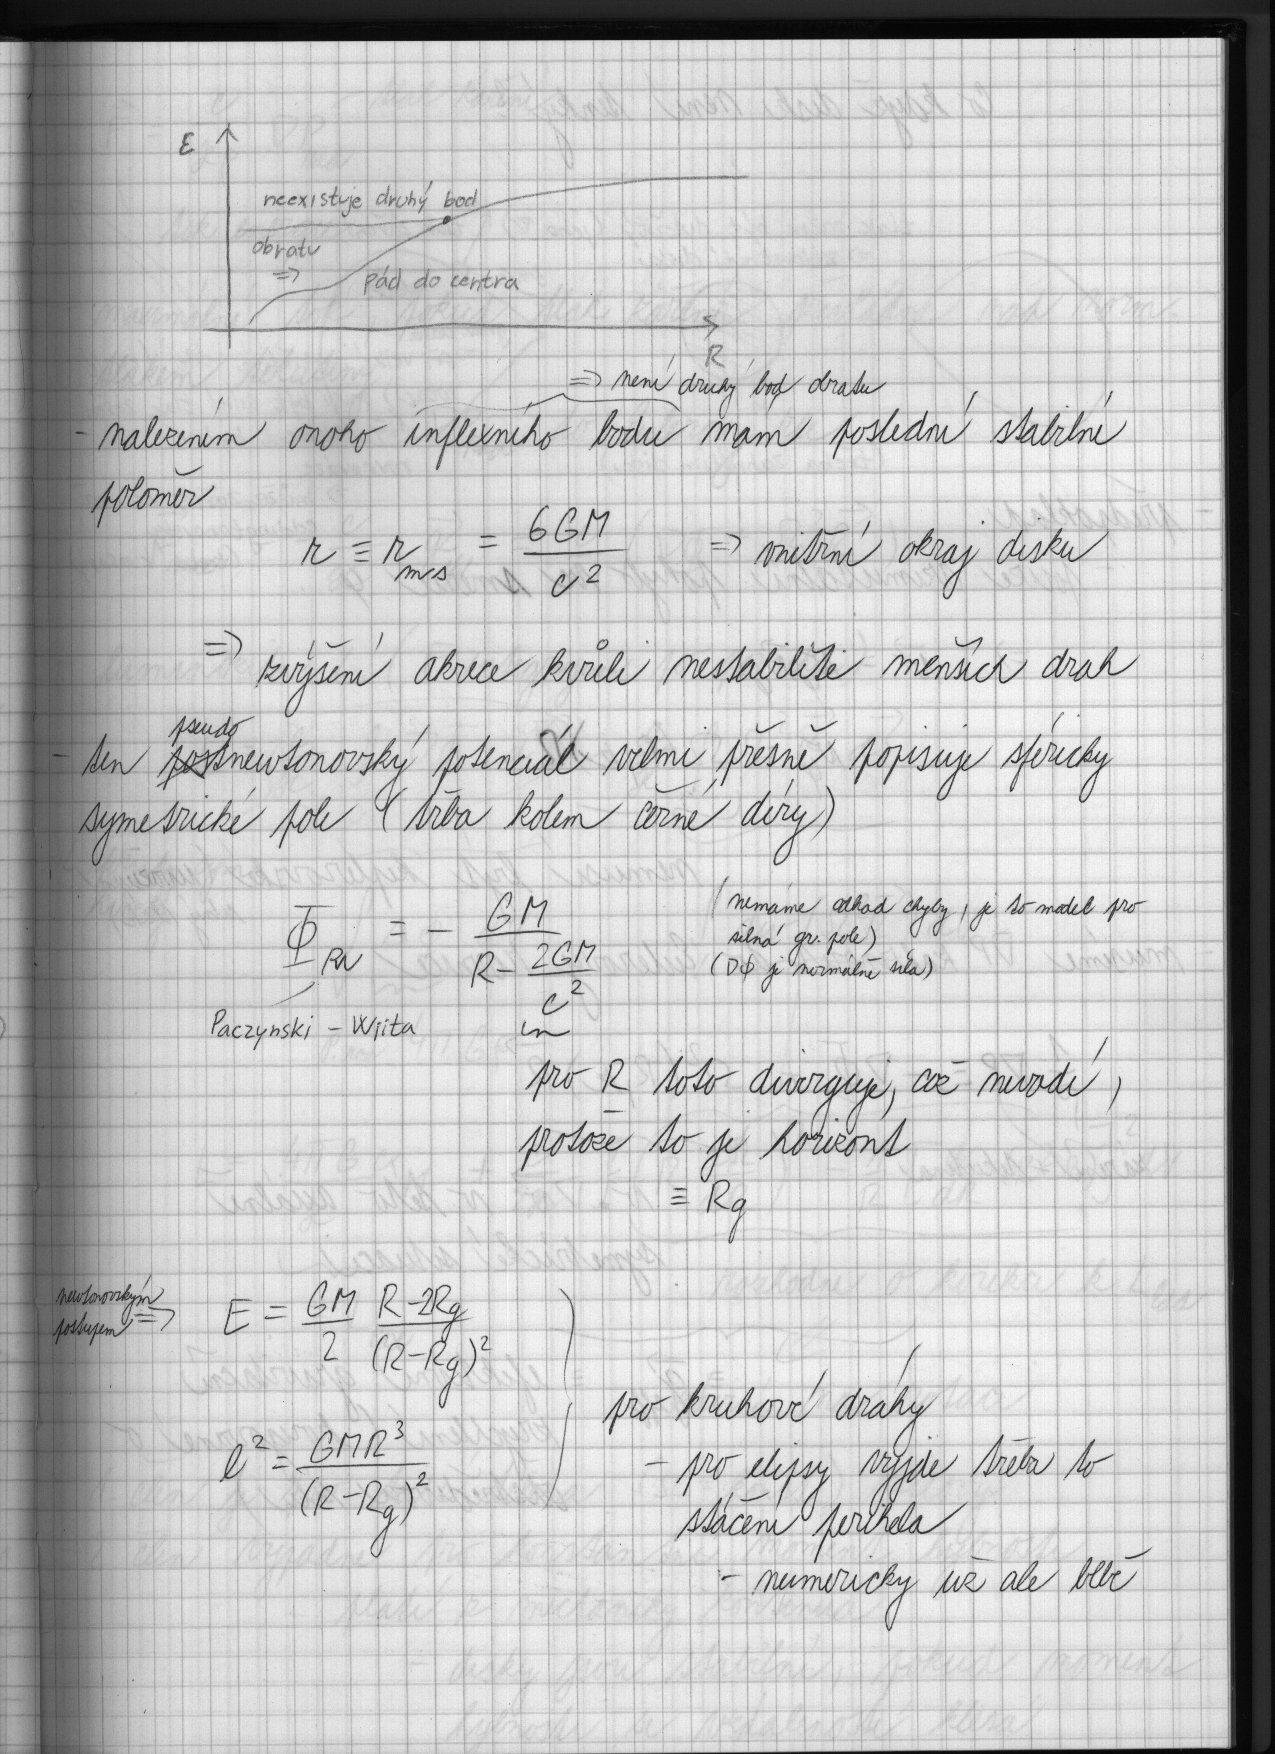 ε
neexistuje druhý bod
obratu
⇒
pád do centra
R
⇒ není druhý bod obratu
- nalezením onoho inflexního bodu mám poslední stabilní
poloměr
r ≡ r_ms = 6GM / c² ⇒ vnitřní okraj disku
⇒ zvýšení akrece kvůli nestabilitě menších drah
pseudo
- ten postnewtonovský potenciál velmi přesně popisuje sféricky
symetrické pole (třba kolem černé díry)
Φ_PW = - GM / (R - 2GM/c²)
(nemáme odhad chyby, je to model pro
silná gr. pole)
(∇Φ je normálně síla)
Paczynski - Wiita
pro R toto diverguje, což nevadí,
protože to je horizont
≡ Rg
newtonovským
postupem ⇒ E = GM/2 (R-2Rg)/(R-Rg)²
l² = GMR³/(R-Rg)²
pro kruhové dráhy
- pro elipsy vyjde třeba to
stáčení perihela
- numericky už ale blbě